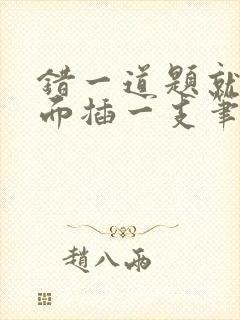 错一道题就
而插一支筆
趙八兩